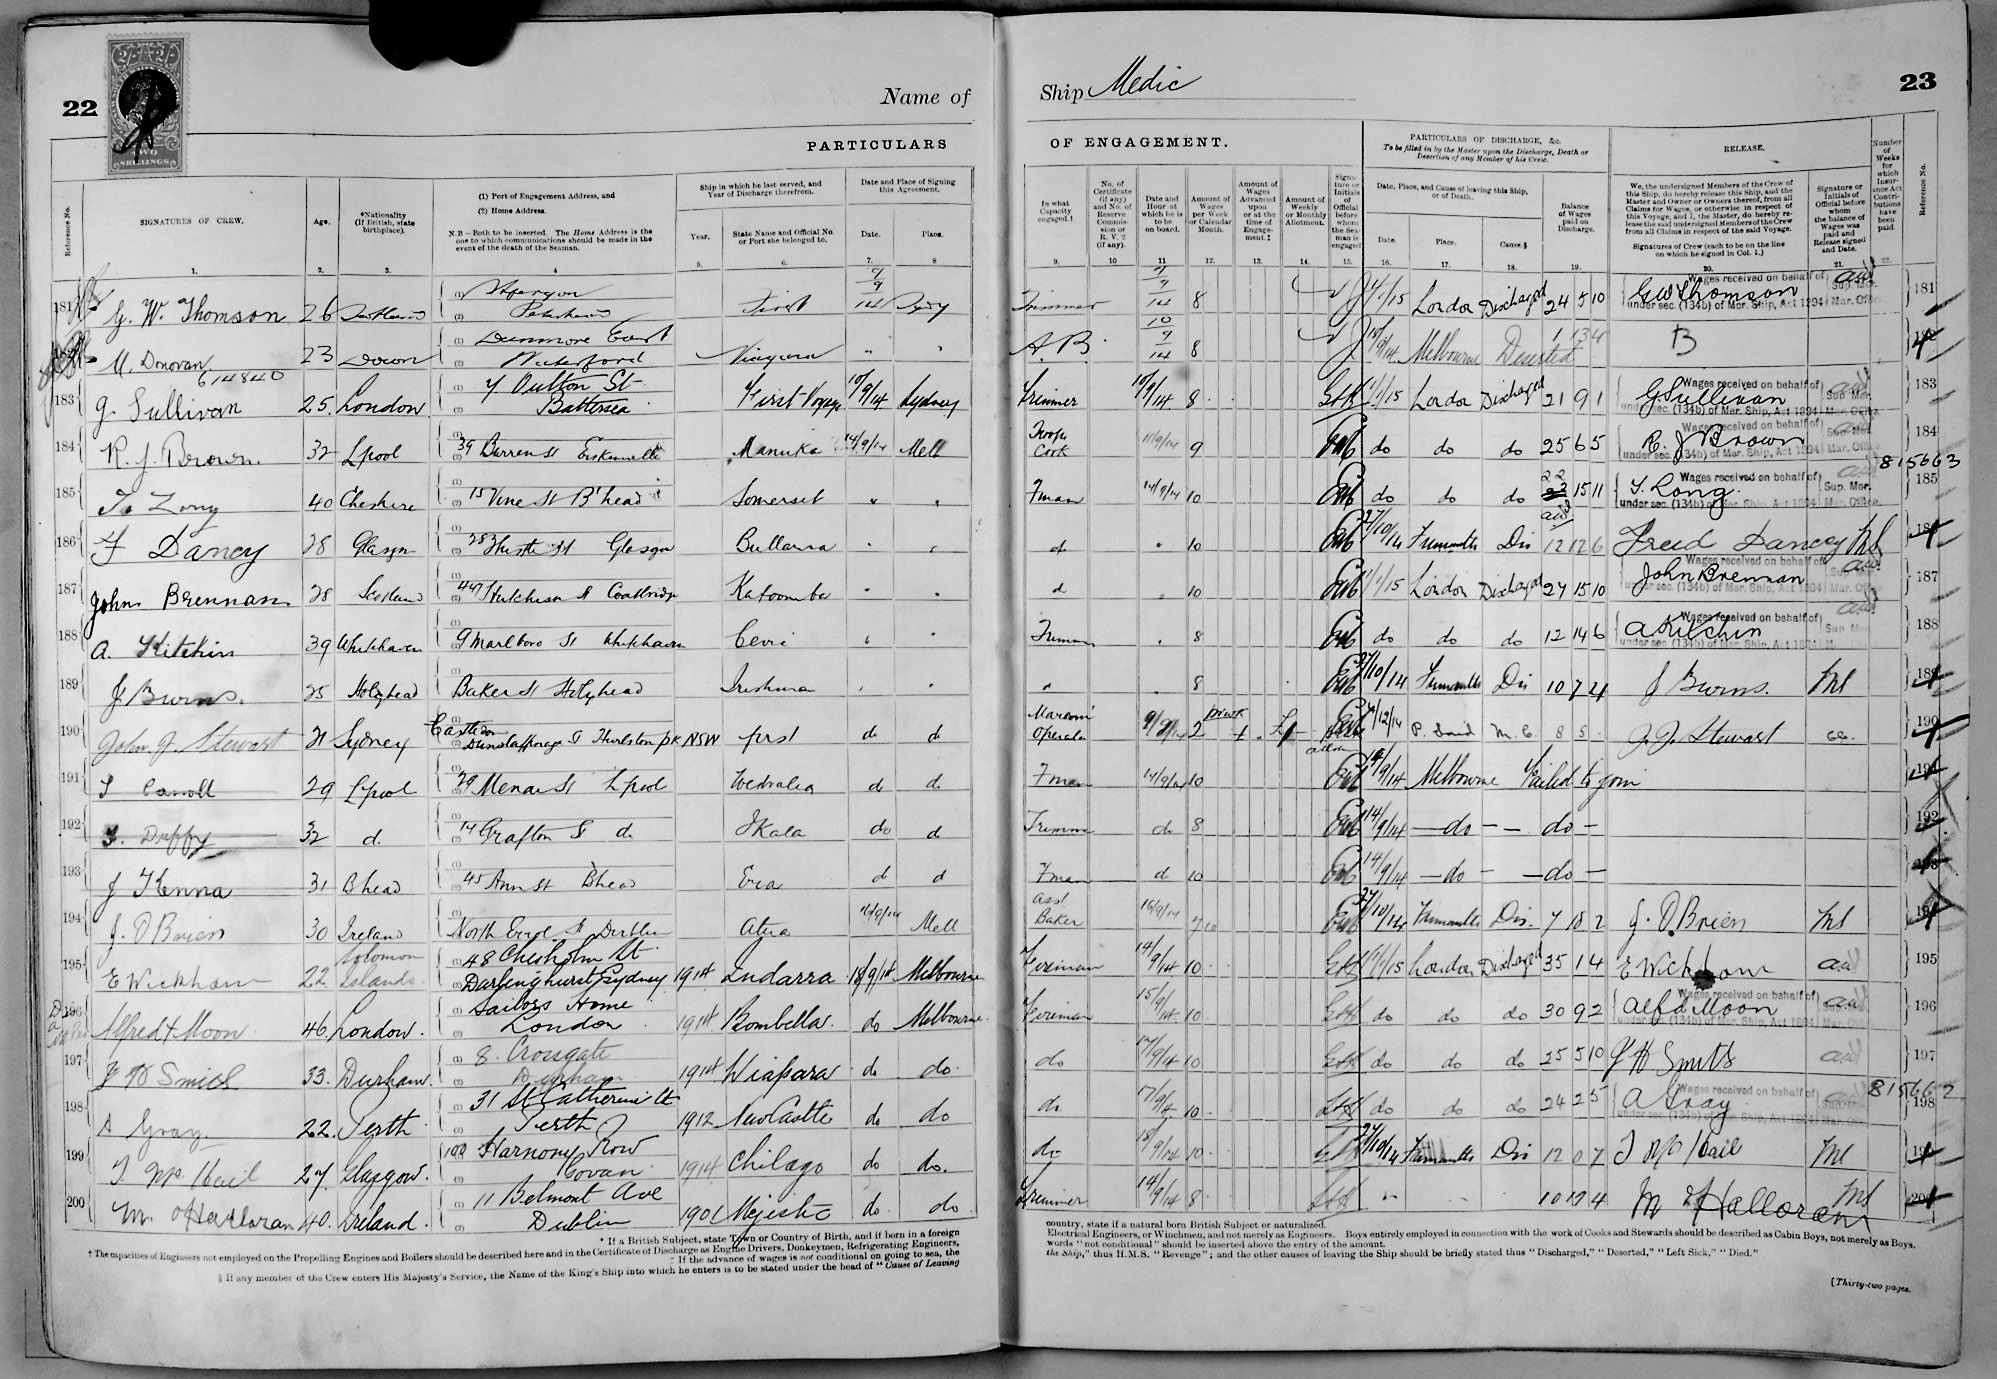 22
2/- 2/-
TWO
SHILLINGS
Name of
PARTICULARS
Reference No.
SIGNATURES OF CREW.
Age.
*Nationality
(If British, state
birthplace).
(1) Port of Engagement Address, and
(2) Home Address.
N.B.—Both to be inserted. The Home Address is the
one to which communications should be made in the
event of the death of the Seaman.
Ship in which he last served, and
Year of Discharge therefrom.
Year.
State Name and Official No.
or Port she belonged to.
Date and Place of Signing
this Agreement.
Date.
Place.
1. 2. 3. 4 5. 6. 7. 8
181 G. W. Thomson 26 Scotland First 9/9/14 Sydy
182 M. Donovan 23 Down Dunmore East Waterford Niagara " "
614840
183 G Sullivan 25. London 7 Oulton St Battersea First Voyage 10/9/14 Sydney
184 R. J. Brown. 32 Lpool 39 Barren St Manuka 14/9/14 Melb
185 T. Long 40 Cheshire 15 Vine St B'head Somerset " "
186 F Dancy 28 Glasgow St Glasgow Bullarra " "
187 John Brennan 28 Scotland 49 Hutchison St Coatbridge Katoomba " "
188 A. Kitchin 39 Whitehaven 9 Marlboro St Whitehaven Cevic " "
189 J Burns. 25 Holyhead Baker St Holyhead Irishman " "
190 John J Stewart 21 Sydney Castledon Dunstaffenage St Hurlston Pk NSW first do do
191 T Carroll 29 Lpool 29 Menai St Lpool Westralia do do
192 T. Duffy 32 d. 14 Grafton St do Ikala do do
193 J Kenna 31 Bhead 45 Ann St Bhead Era do do
194 J. O'Brien 30 Ireland North St Dublin Atua 16/9/14 Melb
195 E Wickham 22 Solomon Islands. 48 Chisholm St Darlinghurst Sydney 1914 Indarra 18/9/14 Melbourne
196 Alfred Moon 46. London. Sailors Home London 1914 Bombella. do Melbourne.
197 J H Smith 33. Durham. 8. Crossgate Durham 1914 Wiapara do do.
198 A Gray 22. Perth 31 St Catherine St Perth 1912 NewCastle do do
199 T. McHail 27. Glasgow. 100 Harmony Row Govan 1914 Chilago do do.
200 M. O'Halloran 40. Ireland. 11 Belmont Ave Dublin 1901 Majestic do do
* If a British Subject, state Town or Country of Birth, and if born in a foreign
† The capacities of Engineers not employed on the Propelling Engines and Boilers should be described here and in the Certificate of Discharge as Engine Drivers, Donkeymen, Refrigerating Engineers,
‡ If the advance of wages is not conditional on going to sea, the
§ If any member of the Crew enters His Majesty's Service, the Name of the King's Ship into which he enters is to be stated under the head of "Cause of Leaving
Ship Medic
23
OF ENGAGEMENT.
PARTICULARS OF DISCHARGE, &c.
To be filled in by the Master upon the Discharge, Death or
Desertion of any Member of his Crew.
RELEASE.
In what
Capacity
engaged.†
No. of
Certificate
(if any)
and No. of
Reserve
Commis-
sion or
R. V. 2
(if any).
Date and
Hour at
which he is
to be
on board.
Amount of
Wages
per Week
or Calendar
Month.
Amount of
Wages
Advanced
upon
or at the
time of
Engage-
ment.‡
Amount of
Weekly
or Monthly
Allotment.
Signa-
ture or
Initials
of
Official
before
whom
the Sea-
man is
engaged
Date, Place, and Cause of leaving this Ship,
or of Death.
Date.
Place.
Cause.§
Balance
of Wages
paid on
Discharge.
We, the undersigned Members of the Crew of
this Ship, do hereby release this Ship, and the
Master and Owner or Owners thereof, from all
Claims for Wages, or otherwise in respect of
this Voyage, and I, the Master, do hereby re-
lease the said undersigned Members of the Crew
from all Claims in respect of the said Voyage.
Signatures of Crew (each to be on the line
on which he signed in Col. 1.)
Signature or
Initials of
Official before
whom
the balance of
Wages was
paid and
Release signed
and Date.
Number
of
Weeks
for
which
Insur-
ance Act
Contri-
butions
have
been
paid.
Reference No.
9. 10 11 12. 13. 14. 15. 16. 17. 18. 19. 20. 21. 22.
Trimmer 9/9/14 8 1/1/15 London Discharged 24 5 10 G W Thomson 181
Wages received on behalf of
under sec. (134b) of Mer. Ship. Act 1894
A. B. 10/9/14 8 18/9/14 Melbourne Deserted 1 13 4 B
Trimmer 10/9/14 8 1/1/15 London Discharged 21 9 1 G Sullivan 183
Troop Cook 11/9/14 9 do do do 25 6 5 R. J Brown 184
815663
Fman 14/9/14 10 do do do 22 15 11 T. Long. 185
d " 10 27/10/14 Fremantle Dis 12 12 6 Fred Dancey 186
d " 10 1/1/15 London Discharged 27 15 10 John Brennan 187
Trimmer " 8 do do do 12 14 6 A Kitchin 188
" " 8 27/10/14 Fremantle Dis 10 7 4 J Burns. 189
Marconi Operator 9/9/14 2 /12/14 P. Said M. C. 8 5 - J. J. Stewart 190
Fman 14/9/14 10 14/9/14 Melbourne Failed to join 191
Trimmer do 8 14/9/14 —do— —do— 192
Fman d 10 14/9/14 —do— —do— 193
Asst. Baker 16/9/14 7 10 27/10/14 Fremantle Dis. 7 18 2 J. O'Brien 194
Fireman 14/9/14 10 1/1/15 London Discharged 35 1 4 E Wickham 195
Fireman 15/9/14 10 do do do 30 9 2 Alfd Moon 196
do 17/9/14 10 do do do 25 5 10 J H Smith 197
815662
do 17/9/14 10 do do do 24 2 5 A Gray 198
do 18/9/14 10 27/10/14 Fremantle Dis 12 0 7 T McHail 199
Trimmer 14/9/14 8 " 10 17 4 M O'Halloran 200
country, state if a natural born British Subject or naturalized.
Electrical Engineers, or Winchmen, and not merely as Engineers. Boys entirely employed in connection with the work of Cooks and Stewards should be described as Cabin Boys, not merely as Boys.
words "not conditional" should be inserted above the entry of the amount.
the Ship," thus H.M.S. "Revenge"; and the other causes of leaving the Ship should be briefly stated thus "Discharged," "Deserted," "Left Sick," "Died."
[Thirty-two pages.